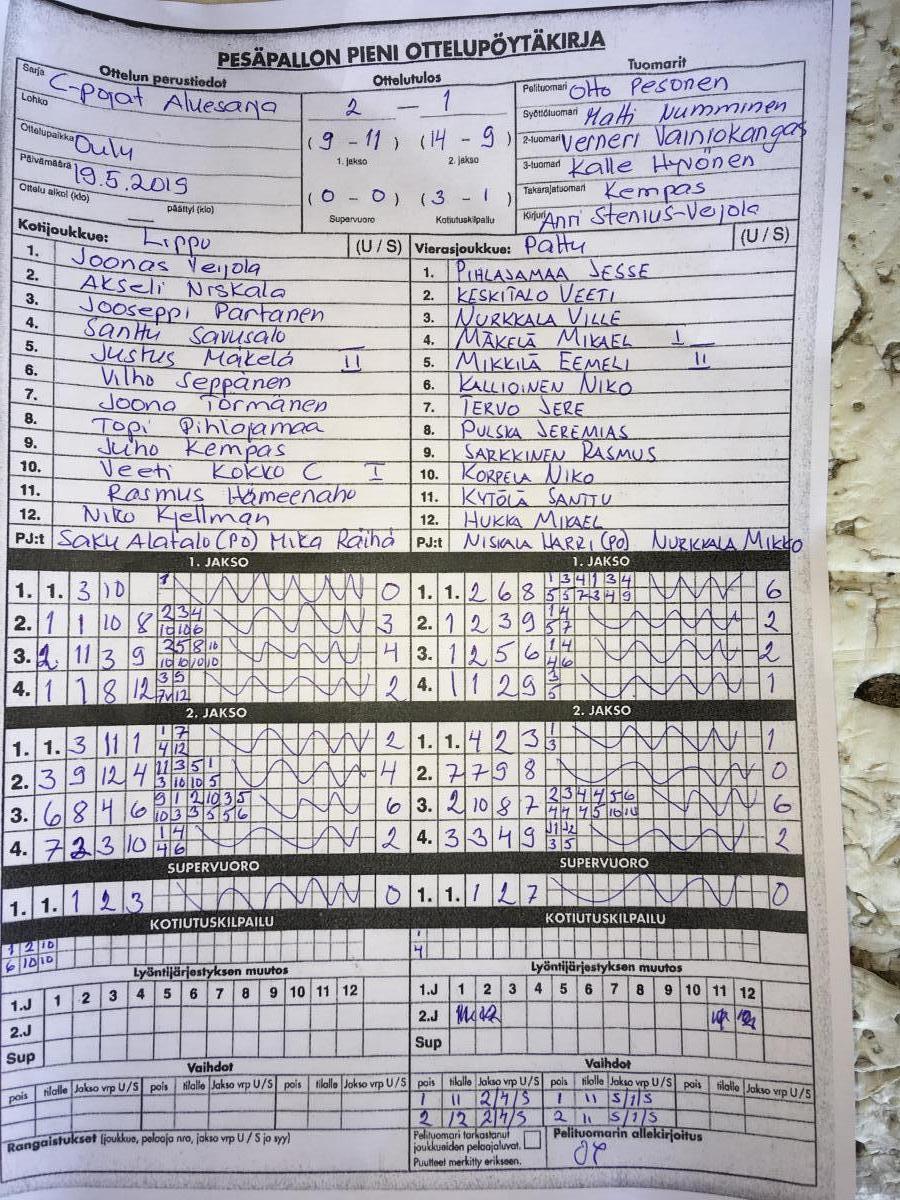 PESÄPALLON PIENI OTTELUPÖYTÄKIRJA
Ottelun perustiedot
Sarja C-pojat Aluesarja
Lohko
Ottelupaikka Oulu
Päivämäärä 19.5.2019
Ottelu alkoi (klo) päättyi (klo)
Ottelutulos
2 — 1
(9 - 11) (14 - 9)
1. jakso 2. jakso
(0 - 0) (3 - 1)
Supervuoro Kotiutuskilpailu
Tuomarit
Pelituomari Otto Pesonen
Syöttötuomari Matti Numminen
2-tuomari Verneri Vainiokangas
3-tuomari Kalle Hyvönen
Takarajatuomari Kempas
Kirjuri Anri Stenius-Veijola
Kotijoukkue: Lippo (U / S)
1. Joonas Veijola
2. Akseli Niskala
3. Jooseppi Partanen
4. Santtu Savusalo
5. Justus Mäkelä II
6. Vilho Seppänen
7. Joona Törmänen
8. Topi Pihlajamaa
9. Juho Kempas
10. Veeti Kokko C I
11. Rasmus Hämeenaho
12. Niko Kjellman
PJ:t Saku Alatalo (PO) Mika Räihä
Vierasjoukkue: Pattu (U / S)
1. PIHLAJAMAA JESSE
2. KESKITALO VEETI
3. NURKKALA VILLE
4. MÄKELÄ MIKAEL I
5. MIKKILÄ EEMELI II
6. KALLIOINEN NIKO
7. TERVO JERE
8. PULSKA JEREMIAS
9. SARKKINEN RASMUS
10. KORPELA NIKO
11. KYTÖLÄ SANTTU
12. HUKKA MIKAEL
PJ:t NISKALA HARRI (PO) NURKKALA MIKKO
1. JAKSO
1. 1. 3 10 0
2. 1 1 10 8 2 3 4 10 10 6 3
3. 2 11 3 9 2 5 8 10 10 10 10 10 4
4. 1 1 8 12 2
2. JAKSO
1. 1. 3 11 1 1 7 4 12 2
2. 3 9 12 4 11 3 5 1 3 10 10 5 4
3. 6 8 4 6 9 1 2 10 3 5 10 3 3 5 5 6 6
4. 7 2 3 10 1 4 4 6 2
SUPERVUORO
1. 1. 1 2 3 0
KOTIUTUSKILPAILU
1 2 10
6 10 10
1. JAKSO
1. 1. 2 6 8 1 3 4 1 3 4 5 5 7 3 4 9 6
2. 1 2 3 9 1 4 5 7 2
3. 1 2 5 6 1 4 4 6 2
4. 1 1 2 9 3 5 1
2. JAKSO
1. 1. 4 2 3 1 3 1
2. 7 7 9 8 0
3. 2 10 8 7 2 3 4 4 5 6 6
4. 3 3 4 9 11 12 3 5 2
SUPERVUORO
1. 1. 1 2 7 0
KOTIUTUSKILPAILU
1
4
Lyöntijärjestyksen muutos
1.J 1 2 3 4 5 6 7 8 9 10 11 12
2.J
Sup
Vaihdot
pois tilalle Jakso vrp U / S pois tilalle Jakso vrp U / S pois tilalle Jakso vrp U / S
Rangaistukset (joukkue, pelaaja nro, jakso vrp U / S ja syy)
Lyöntijärjestyksen muutos
1.J 1 2 3 4 5 6 7 8 9 10 11 12
2.J
Sup
Vaihdot
pois tilalle Jakso vrp U / S pois tilalle Jakso vrp U / S pois tilalle Jakso vrp U / S
1 11 2/4/S 1 11 S/1/S
2 12 2/4/S 2 11 S/1/S
Pelituomari tarkastanut
joukkueiden pelaajaluvat.
Puutteet merkitty erikseen.
Pelituomarin allekirjoitus